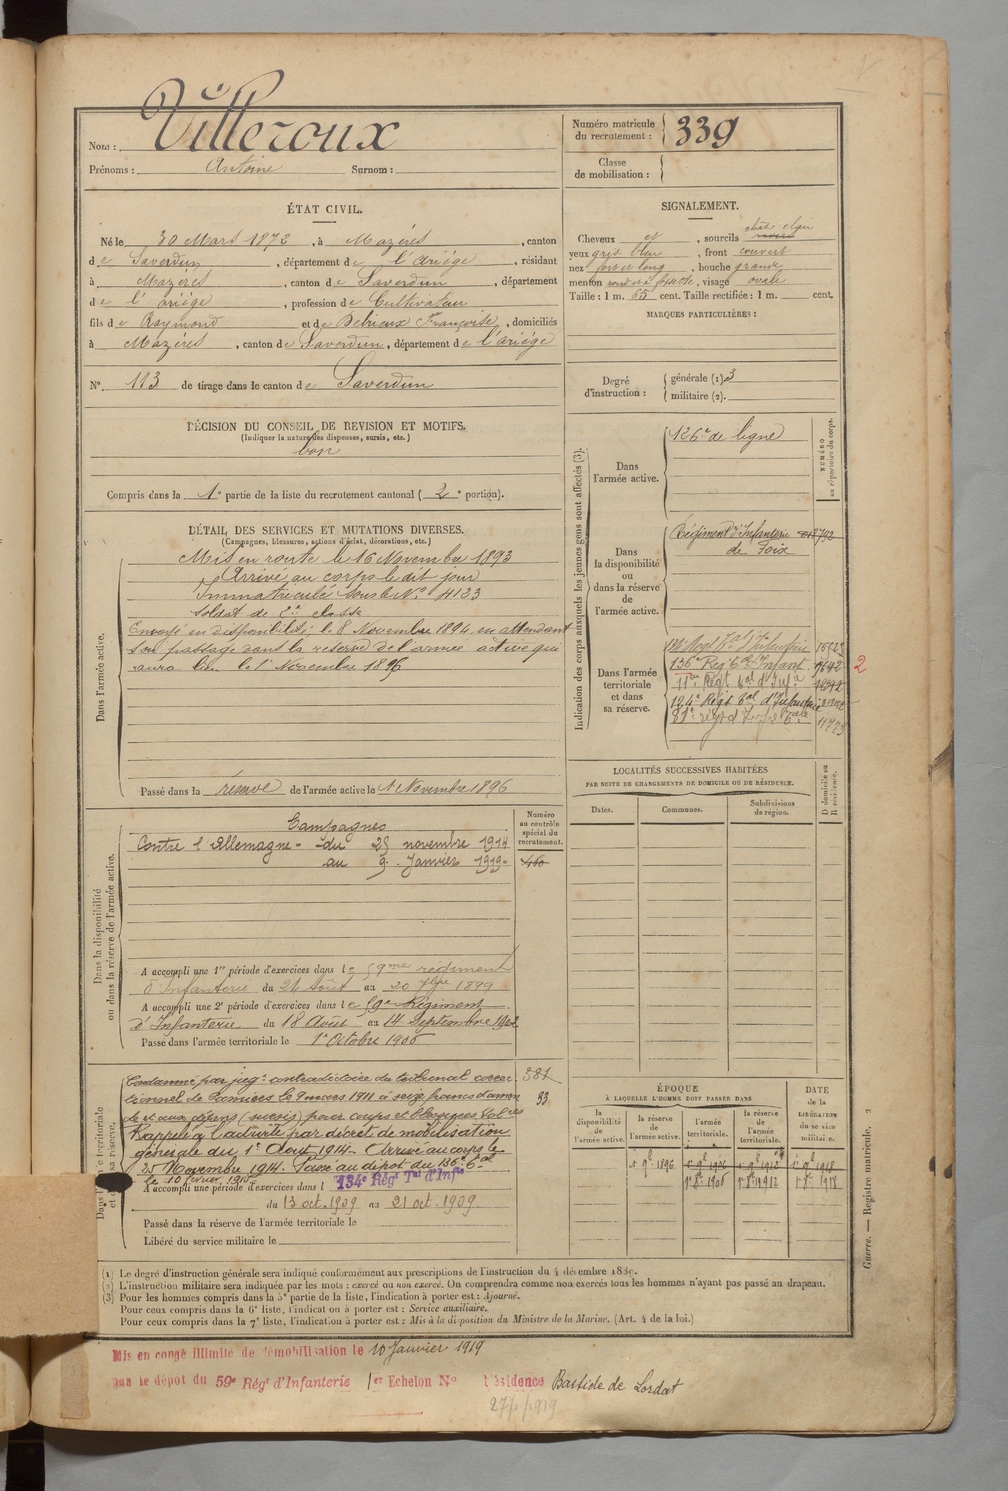 Nom : Villeroux
Prénoms : Antoine Surnom :
Numéro matricule du recrutement : 339
Classe de mobilisation :
ÉTAT CIVIL.
Né le 30 Mars 1873, à Mazères, canton
de Saverdun, département de l'Ariège, résidant
à Mazères, canton de Saverdun, département
de l'Ariège, profession de Cultivateur
fils de Raymond et de Debrieux Françoise, domiciliés
à Mazères, canton de Saverdun, département de l'Ariège
N° 113 de tirage dans le canton de Saverdun
DÉCISION DU CONSEIL DE REVISION ET MOTIFS.
(Indiquer la nature des dispenses, sursis, etc.)
bon
Compris dans la 1e partie de la liste du recrutement cantonal (2e portion).
DÉTAIL DES SERVICES ET MUTATIONS DIVERSES.
(Campagnes, blessures, actions d'éclat, décorations, etc.)
Dans l'armée active.
Mis en route le 16 Novembre 1893
Arrivé au corps le dit jour
Immatriculé sous le N° 4123
Soldat de 2e classe
Envoyé en disponibilité, le 8 Novembre 1894, en attendant
son passage dans la réserve de l'armée active qui
aura lieu le 1er Novembre 1896
Passé dans la réserve de l'armée active le 1er Novembre 1896
Dans la disponibilité ou dans la réserve de l'armée active.
Numéro au contrôle spécial du recrutement.
Campagnes
Contre l'Allemagne - du 25 novembre 1914
au 9 Janvier 1919
460
A accompli une 1re période d'exercices dans le 59me régiment
d'Infanterie du 24 Août au 20 7bre 1899
A accompli une 2e période d'exercices dans le 59e Régiment
d'Infanterie du 18 Août au 14 Septembre 1902
Passé dans l'armée territoriale le 1er Octobre 1906
Condamné par jugt contradictoire du tribunal correc
tionnel de Pamiers le 9 mars 1911 à seize francs d'amen
de et aux dépens (sursis) pour coups et blessures volres
Rappelé à l'activité par décret de mobilisation
générale du 1er Août 1914. Arrivé au corps le
25 Novembre 1914. Passé au dépôt du 136e tal
le 10 février 1915
581
33
A accompli une période d'exercices dans l 134e Régt Tal d'Infie
du 13 oct. 1909 au 21 oct. 1909.
Passé dans la réserve de l'armée territoriale le
Libéré du service militaire le
SIGNALEMENT.
Cheveux et, sourcils chats clair
yeux gris bleu, front couvert
nez fort et long, bouche grande
menton rond et à fossette, visage ovale
Taille : 1 m. 65 cent. Taille rectifiée : 1 m. cent.
MARQUES PARTICULIÈRES :
Degré d'instruction : générale (1) 3
militaire (2).
Indication des corps auxquels les jeunes gens sont affectés (3).
NUMÉRO au répertoire du corps.
Dans l'armée active.
126e de ligne
Dans la disponibilité ou dans la réserve de l'armée active.
Régiment d'Infanterie
de Foix
Dans l'armée territoriale et dans sa réserve.
136e Reg tal Infant.
11e Régt tal d'Infie
124e Régt tal d'Infanterie
2
LOCALITÉS SUCCESSIVES HABITÉES
PAR SUITE DE CHANGEMENTS DE DOMICILE OU DE RÉSIDENCE.
D domicile ou R résidence.
Dates. Communes. Subdivisions de région.
ÉPOQUE
À LAQUELLE L'HOMME DOIT PASSER DANS
DATE de la LIBÉRATION du service militaire.
la disponibilité de l'armée active. la réserve de l'armée active. l'armée territoriale. la réserve de l'armée territoriale.
1er 9b 1896 1er 9b 1906 1er 9b 1912 1er 9b 1918
1er 8b 1906 1er 8b 1912 1er 8b 1918
(1) Le degré d'instruction générale sera indiqué conformément aux prescriptions de l'instruction du 4 décembre 1889.
(2) L'instruction militaire sera indiquée par les mots : exercé ou non exercé. On comprendra comme non exercés tous les hommes n'ayant pas passé au drapeau.
(3) Pour les hommes compris dans la 5e partie de la liste, l'indication à porter est : Ajourné.
Pour ceux compris dans la 6e liste, l'indication à porter est : Service auxiliaire.
Pour ceux compris dans la 7e liste, l'indication à porter est : Mis à la disposition du Ministre de la Marine. (Art. 4 de la loi.)
Guerre. — Registre matricule. 2
Mis en congé illimité de démobilisation le 10 Janvier 1919
par le dépôt du 59e Régt d'Infanterie 1er Echelon N° Résidence Bastide de Lordat
27/1/1919